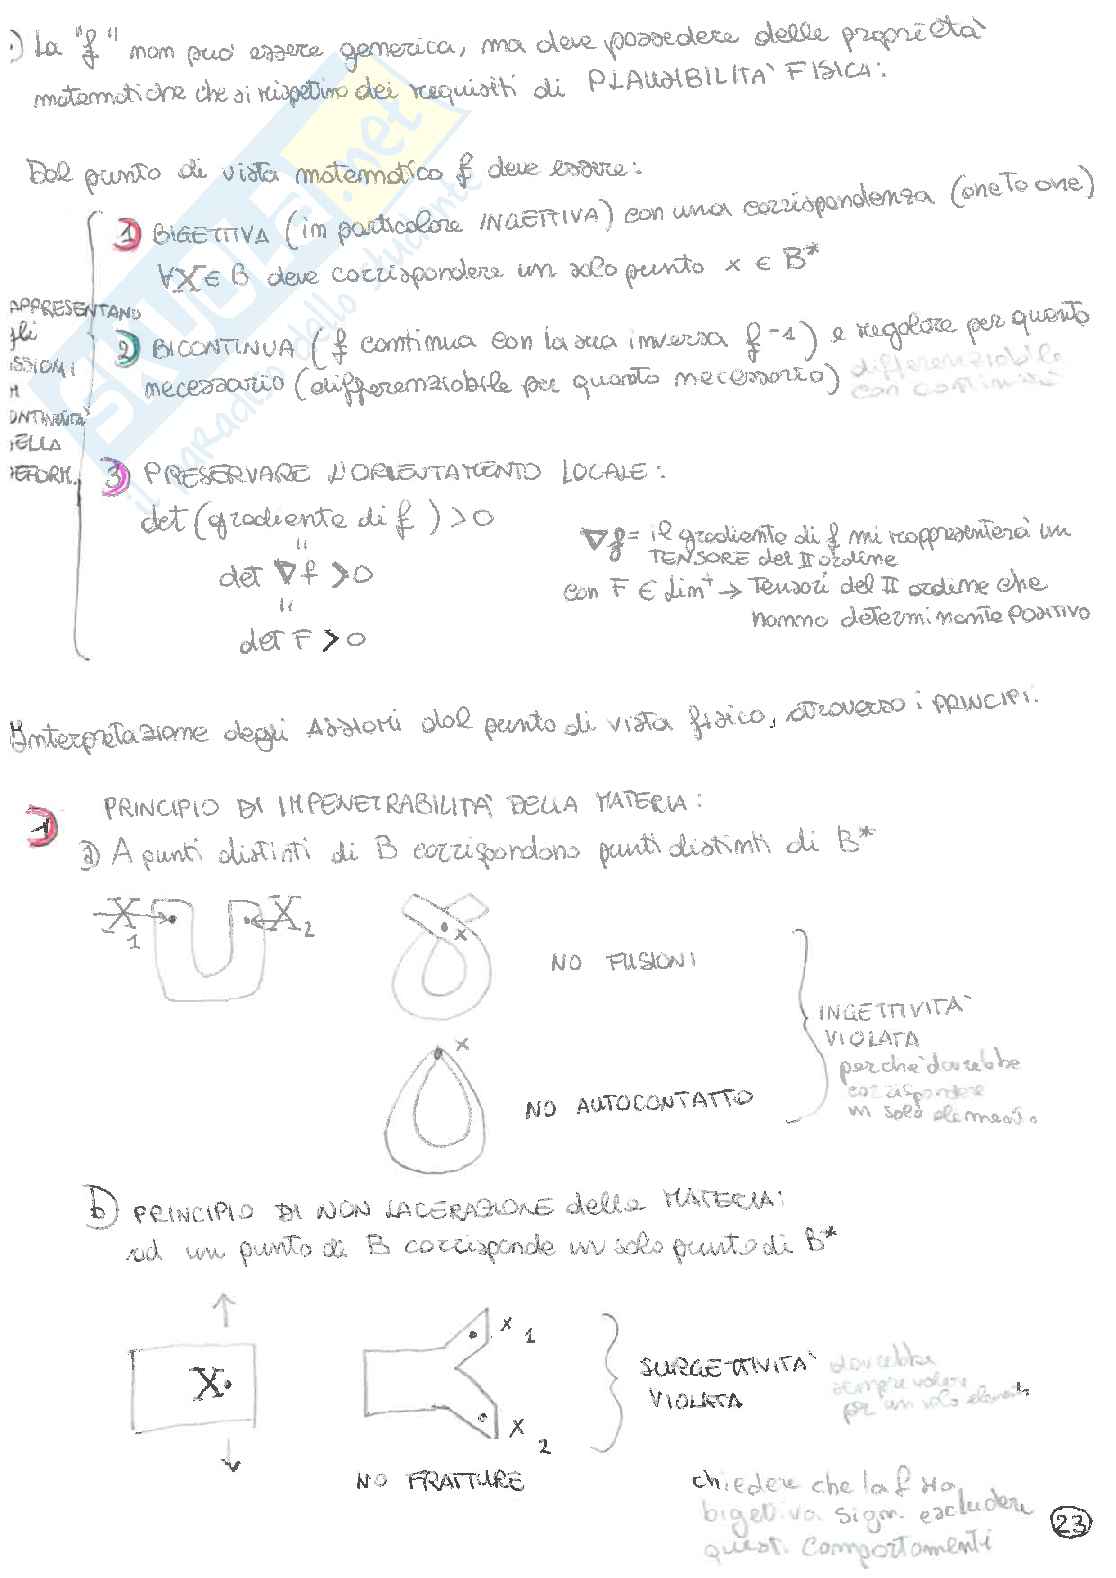 ·) La "f" non può essere generica, ma deve possedere delle proprietà
matematiche che si rispettino dei requisiti di PLAUSIBILITA' FISICA:
Dal punto di vista matematico f deve essere:
1 BIGETTIVA (in particolare INGETTIVA) con una corrispondenza (one to one)
∀X ∈ B deve corrispondere un solo punto x ∈ B*
2 BICONTINUA (f continua con la sua inversa f⁻¹) e regolare per quanto
necessario (differenziabile per quanto necessario) differenziabile
con continuità
APPRESENTANO
gli
SSIOMI
ONTINUITA'
DELLA
DEFORM.
3 PRESERVARE L'ORIENTAMENTO LOCALE:
det (gradiente di f) > 0
"
det ∇f > 0
"
det F > 0
∇f = il gradiente di f mi rappresenterà un
TENSORE del II ordine
con F ∈ Lin⁺ → Tensori del II ordine che
hanno determinante POSITIVO
Interpretazione degli Assiomi dal punto di vista fisico, attraverso i PRINCIPI:
1 PRINCIPIO DI IMPENETRABILITA' DELLA MATERIA:
a) A punti distinti di B corrispondono punti distinti di B*
X₁ X₂
x
NO FUSIONI
x
NO AUTOCONTATTO
INGETTIVITA'
VIOLATA
perchè dovrebbe
corrispondere
un solo elemento
b) PRINCIPIO DI NON LACERAZIONE della MATERIA:
ad un punto di B corrisponde un solo punto di B*
X
x₁
x₂
NO FRATTURE
SURGETTIVITA'
VIOLATA
dovrebbe
sempre valere
per un solo elemento
chiedere che la f sia
bigettiva sign. escludere
questi comportamenti
23
SKUOLA.net
il paradiso dello studente